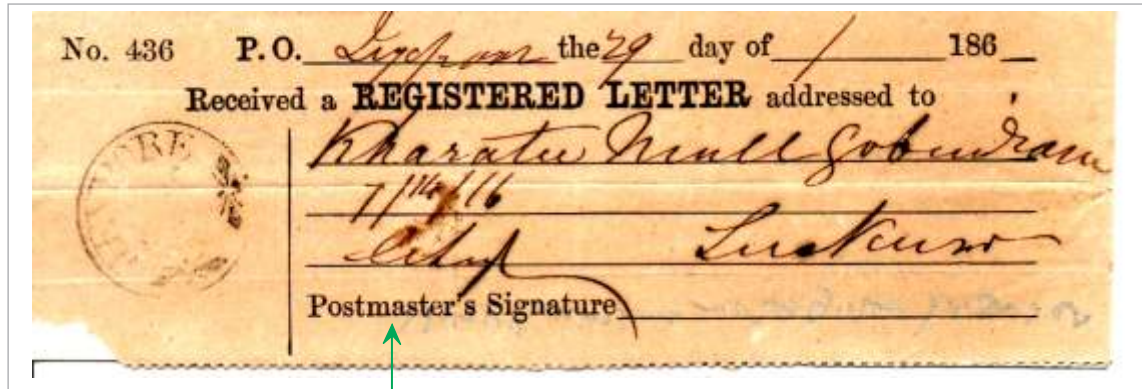 No. 436 P.O. the 29 day of / 186
Received a REGISTERED LETTER addressed to
Kharatee Mull Gobindram
City Lucknow
Postmaster's Signature